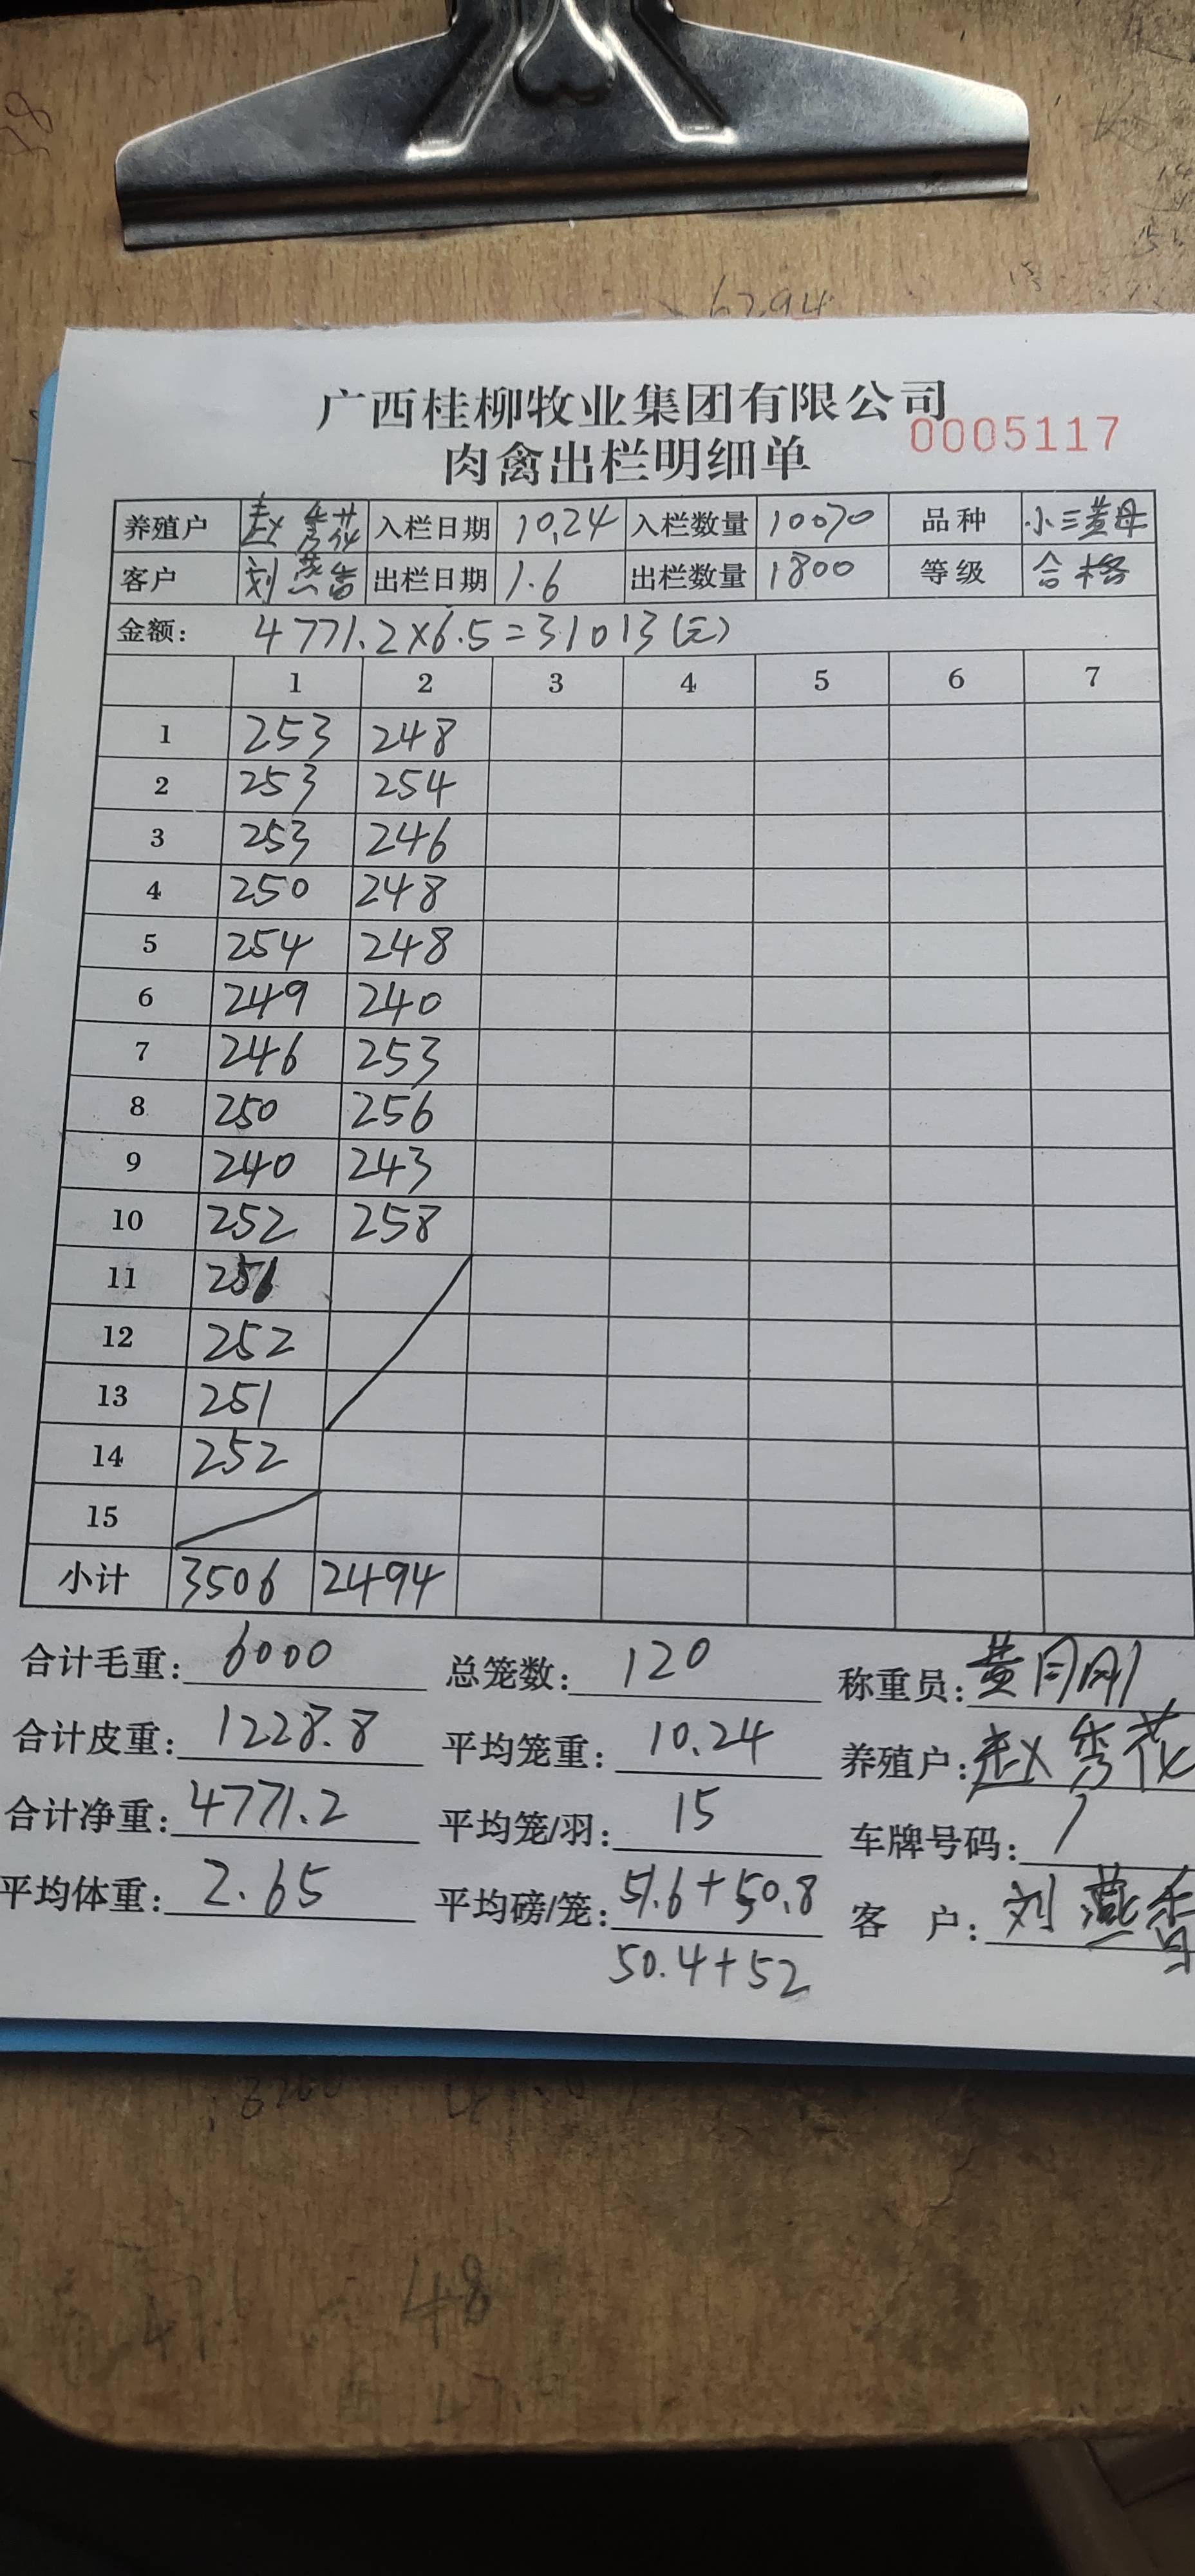 62.94
广西桂柳牧业集团有限公司
0005117
肉禽出栏明细单
养殖户 赵秀花 入栏日期 10.24 入栏数量 10070 品种 小三黄母
客户 刘燕香 出栏日期 1.6 出栏数量 1800 等级 合格
金额: 4771.2×6.5=31013(元)
1 2 3 4 5 6 7
1 253 248
2 253 254
3 253 246
4 250 248
5 254 248
6 249 240
7 246 253
8 250 256
9 240 243
10 252 258
11 251
12 252
13 251
14 252
15
小计 3506 2494
合计毛重: 6000 总笼数: 120 称重员: 黄月刚
合计皮重: 1228.8 平均笼重: 10.24 养殖户: 赵秀花
合计净重: 4771.2 平均笼/羽: 15 车牌号码: /
平均体重: 2.65 平均磅/笼: 51.6+50.8 客户: 刘燕香
50.4+52
48